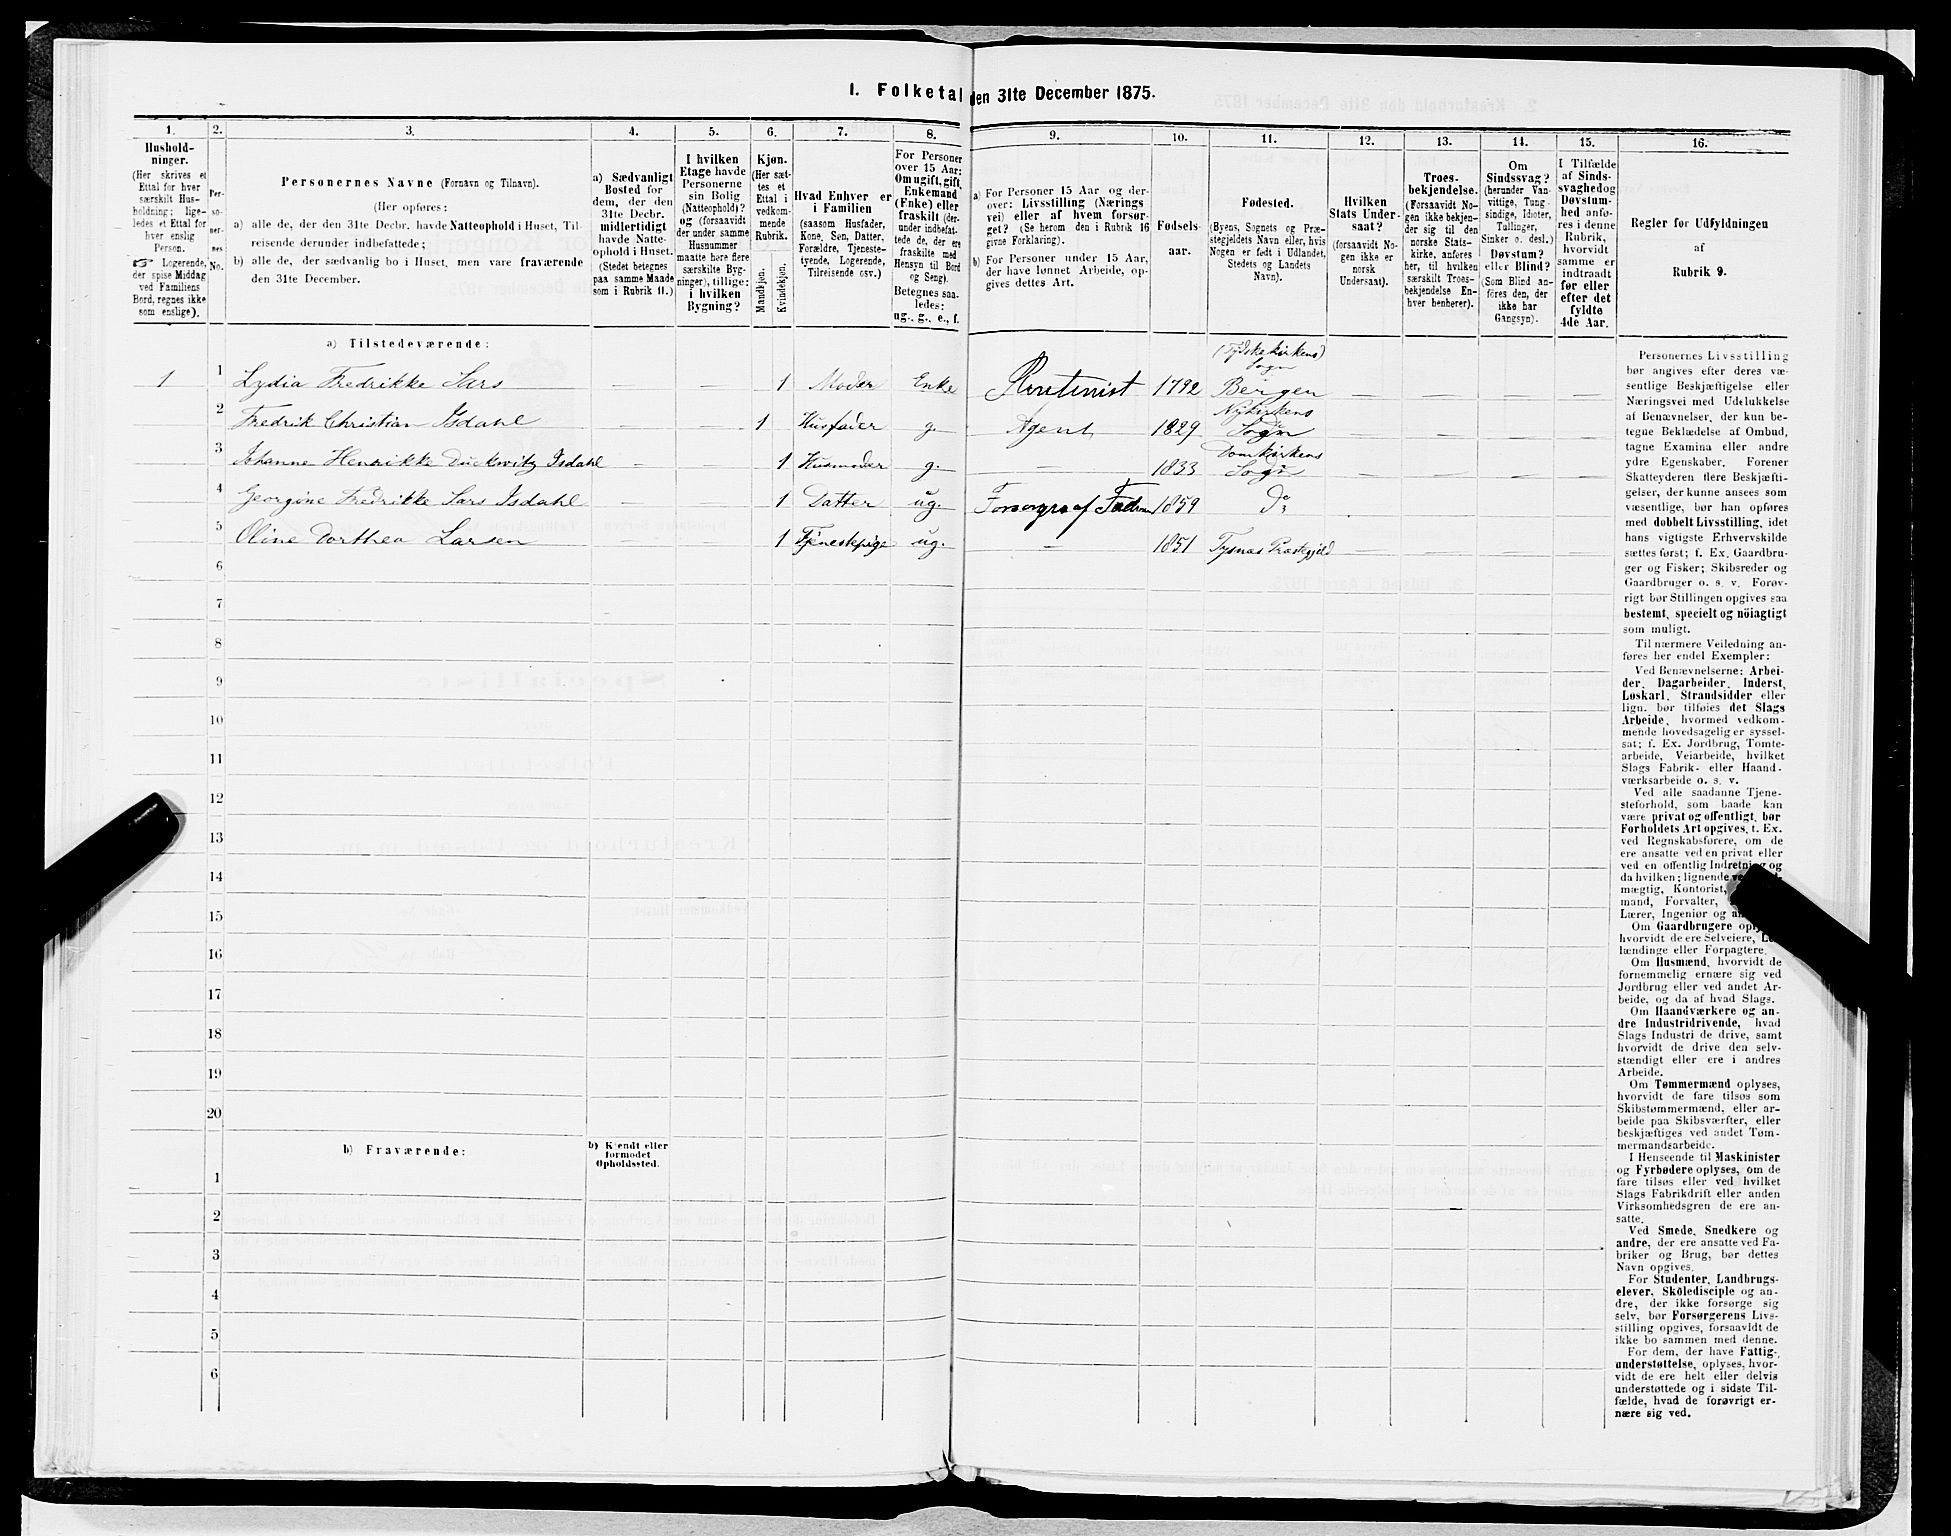 1. Folketal den 31te December 1875.
1. 2. 3. 4. 5. 6. 7. 8. 9. 10. 11. 12. 13. 14. 15. 16.
Hushold-
ninger.
(Her skrives et
Ettal for hver
særskilt Hus-
holdning; lige-
ledes et Ettal for
hver enslig
Person.
☞ Logerende,
der spise Middag
ved Familiens
Bord, regnes ikke
som enslige).
Per-
so-
ner-
nes
No.
Personernes Navne (Fornavn og Tilnavn).
(Her opføres:
a) alle de, der den 31te Decbr. havde Natteophold i Huset, Til-
reisende derunder indbefattede;
b) alle de, der sædvanlig bo i Huset, men vare fraværende
den 31te December.
a) Sædvanligt
Bosted for
dem, der den
31te Decbr.
midlertidigt
havde Natte-
ophold i Huset.
(Stedet betegnes
paa samme Maade
som i Rubrik 11.)
I hvilken
Etage havde
Personerne
sin Bolig
(Natteophold)?
og (forsaavidt
der under samme
Husnummer
maatte høre flere
særskilte Byg-
ninger), tillige:
i hvilken
Bygning?
Kjøn.
(Her sæt-
tes et
Ettal i
vedkom-
mende
Rubrik.
Mandkjøn.
Kvindekjøn.
Hvad Enhver er
i Familien
(saasom Husfader,
Kone, Søn, Datter,
Forældre, Tjeneste-
tyende, Logerende,
Tilreisende osv.)
For Personer
over 15 Aar:
Om ugift, gift,
Enkemand
(Enke) eller
fraskilt (der-
under indbefat-
tede de, der ere
fraskilte med
Hensyn til Bord
og Seng).
Betegnes saa-
ledes:
ug., g., e., f.
a) For Personer 15 Aar og der-
over: Livsstilling (Nærings
vei) eller af hvem forsør-
get? (Se herom den i Rubrik 16
givne Forklaring).
b) For Personer under 15 Aar,
der have lønnet Arbeide, op-
gives dettes Art.
Fødsels-
aar.
Fødested.
(Byens, Sognets og Præ-
stegjeldets Navn eller, hvis
Nogen er født i Udlandet,
Stedets og Landets
Navn).
Hvilken
Stats Under-
saat?
(forsaavidt No-
gen ikke er
norsk
Undersaat).
Troes-
bekjendelse.
(Forsaavidt No-
gen ikke bekjen-
der sig til den
norske Stats-
kirke, anføres
her, til hvilken
særskilt Troes-
bekjendelse En-
hver benhører).
Om
Sindssvag?
(herunder Van-
vittige, Tung-
sindige, Idioter,
Tullinger,
Sinker o. desl.)
Døvstum?
eller Blind?
(Som Blind an-
føres den, der
ikke har
Gangsyn).
I Tilfælde
af Sinds-
svaghedog
Døvstum-
hed anfø-
res i denne
Rubrik,
hvorvidt
samme er
indtraadt
før eller
efter det
fyldte
4de Aar.
Regler for Udfyldningen
af
Rubrik 9.
a) Tilstedeværende:
(Tydskekirkens)
Sogn
1 1 Lydia Fredrikke Sars — — 1 Moder Enke Rentenist 1792 Bergen — — — —
Nykirkens
2 Fredrik Christian Isdahl — — 1 Husfader g. Agent 1829 Sogn — — — —
Domkirkens
3 Johanne Henrikke Duckwitz Isdahl — — 1 Husmoder g. — 1833 Sogn — — — —
4 Georgine Fredrikke Sars Isdahl — — 1 Datter ug. Forsørges af Fadren 1859 Do — — — —
5 Oline Dorthea Larsen — — 1 Tjenestepige ug. — 1851 Tysnæs Præstegjeld — — — —
6
7
8
9
10
11
12
13
14
15
16
17
18
19
20
b) Fraværende:
b) Kjendt eller
formodet
Opholdssted.
1
2
3
4
5
6
Personernes Livsstilling
bør angives efter deres væ-
sentlige Beskjæftigelse eller
Næringsvei med Udelukkelse
af Benævnelser, der kun be-
tegne Beklædelse af Ombud,
tagne Examina eller andre
ydre Egenskaber. Forener
Skatteyderen flere Beskjæfti-
gelser, der kunne ansees som
væsentlige, bør han opføres
med dobbelt Livsstilling, idet
hans vigtigste Erhvervskilde
sættes først; f. Ex. Gaardbru-
ger og Fisker; Skibsreder og
Gaardbruger o. s. v. Forøv-
rigt bør Stillingen opgives saa
bestemt, specielt og nöiagtigt
som muligt.
Til nærmere Veiledning an-
føres her endel Exempler:
Ved Benævnelserne: Arbei-
der, Dagarbeider, Inderst,
Løskarl, Strandsidder eller
lign. bør tilføies det Slags
Arbeide, hvormed vedkom-
mende hovedsagelig er syssel-
sat; f. Ex. Jordbrug, Tomte-
arbeide, Veiarbeide, hvilket
Slags Fabrik- eller Haand-
værksarbeide o. s. v.
Ved alle saadanne Tjene-
steforhold, som baade kan
være privat og offentligt, bør
Forholdets Art opgives, t. Ex.
ved Regnskabsførere, om de
ere ansatte ved en privat eller
ved en offentlig Indretning og
da hvilken; lignende
mægtig, Kontorist,
mand, Forvalter,
Lærer, Ingeniør og
Om Gaardbrugere
hvorvidt de ere Selveiere,
lændinge eller Forpagtere.
Om Husmænd, hvorvidt de
fornemmelig ernære sig ved
Jordbrug eller ved andet Ar-
beide, og da af hvad Slags.
Om Haandværkere og an-
dre Industridrivende, hvad
Slags Industri de drive, samt
hvorvidt de drive den selv-
stændigt eller ere i andres
Arbeide.
Om Tømmermænd oplyses,
hvorvidt de fare tilsøs som
Skibstømmermænd, eller ar-
beide paa Skibsværfter, eller
beskjæftiges ved andet Tøm-
mermandsarbeide.
I Henseende til Maskinister
og Fyrbødere oplyses, om de
fare tilsøs eller ved hvilket
Slags Fabrikdrift eller anden
Virksomhedsgren de ere an-
satte.
Ved Smede, Snedkere og
andre, der ere ansatte ved Fa-
briker og Brug, bør dettes
Navn opgives.
For Studenter, Landbrugs-
elever, Skoledisciple og an-
dre, der ikke forsørge sig
selv, bør Forsørgerens Livs-
stilling opgives, forsaavidt de
ikke bo sammen med denne.
For dem, der have Fattig-
understøttelse, oplyses, hvor-
vidt de ere helt eller delvis
understøttede og i sidste Til-
fælde, hvad de forøvrigt er-
nære sig ved.